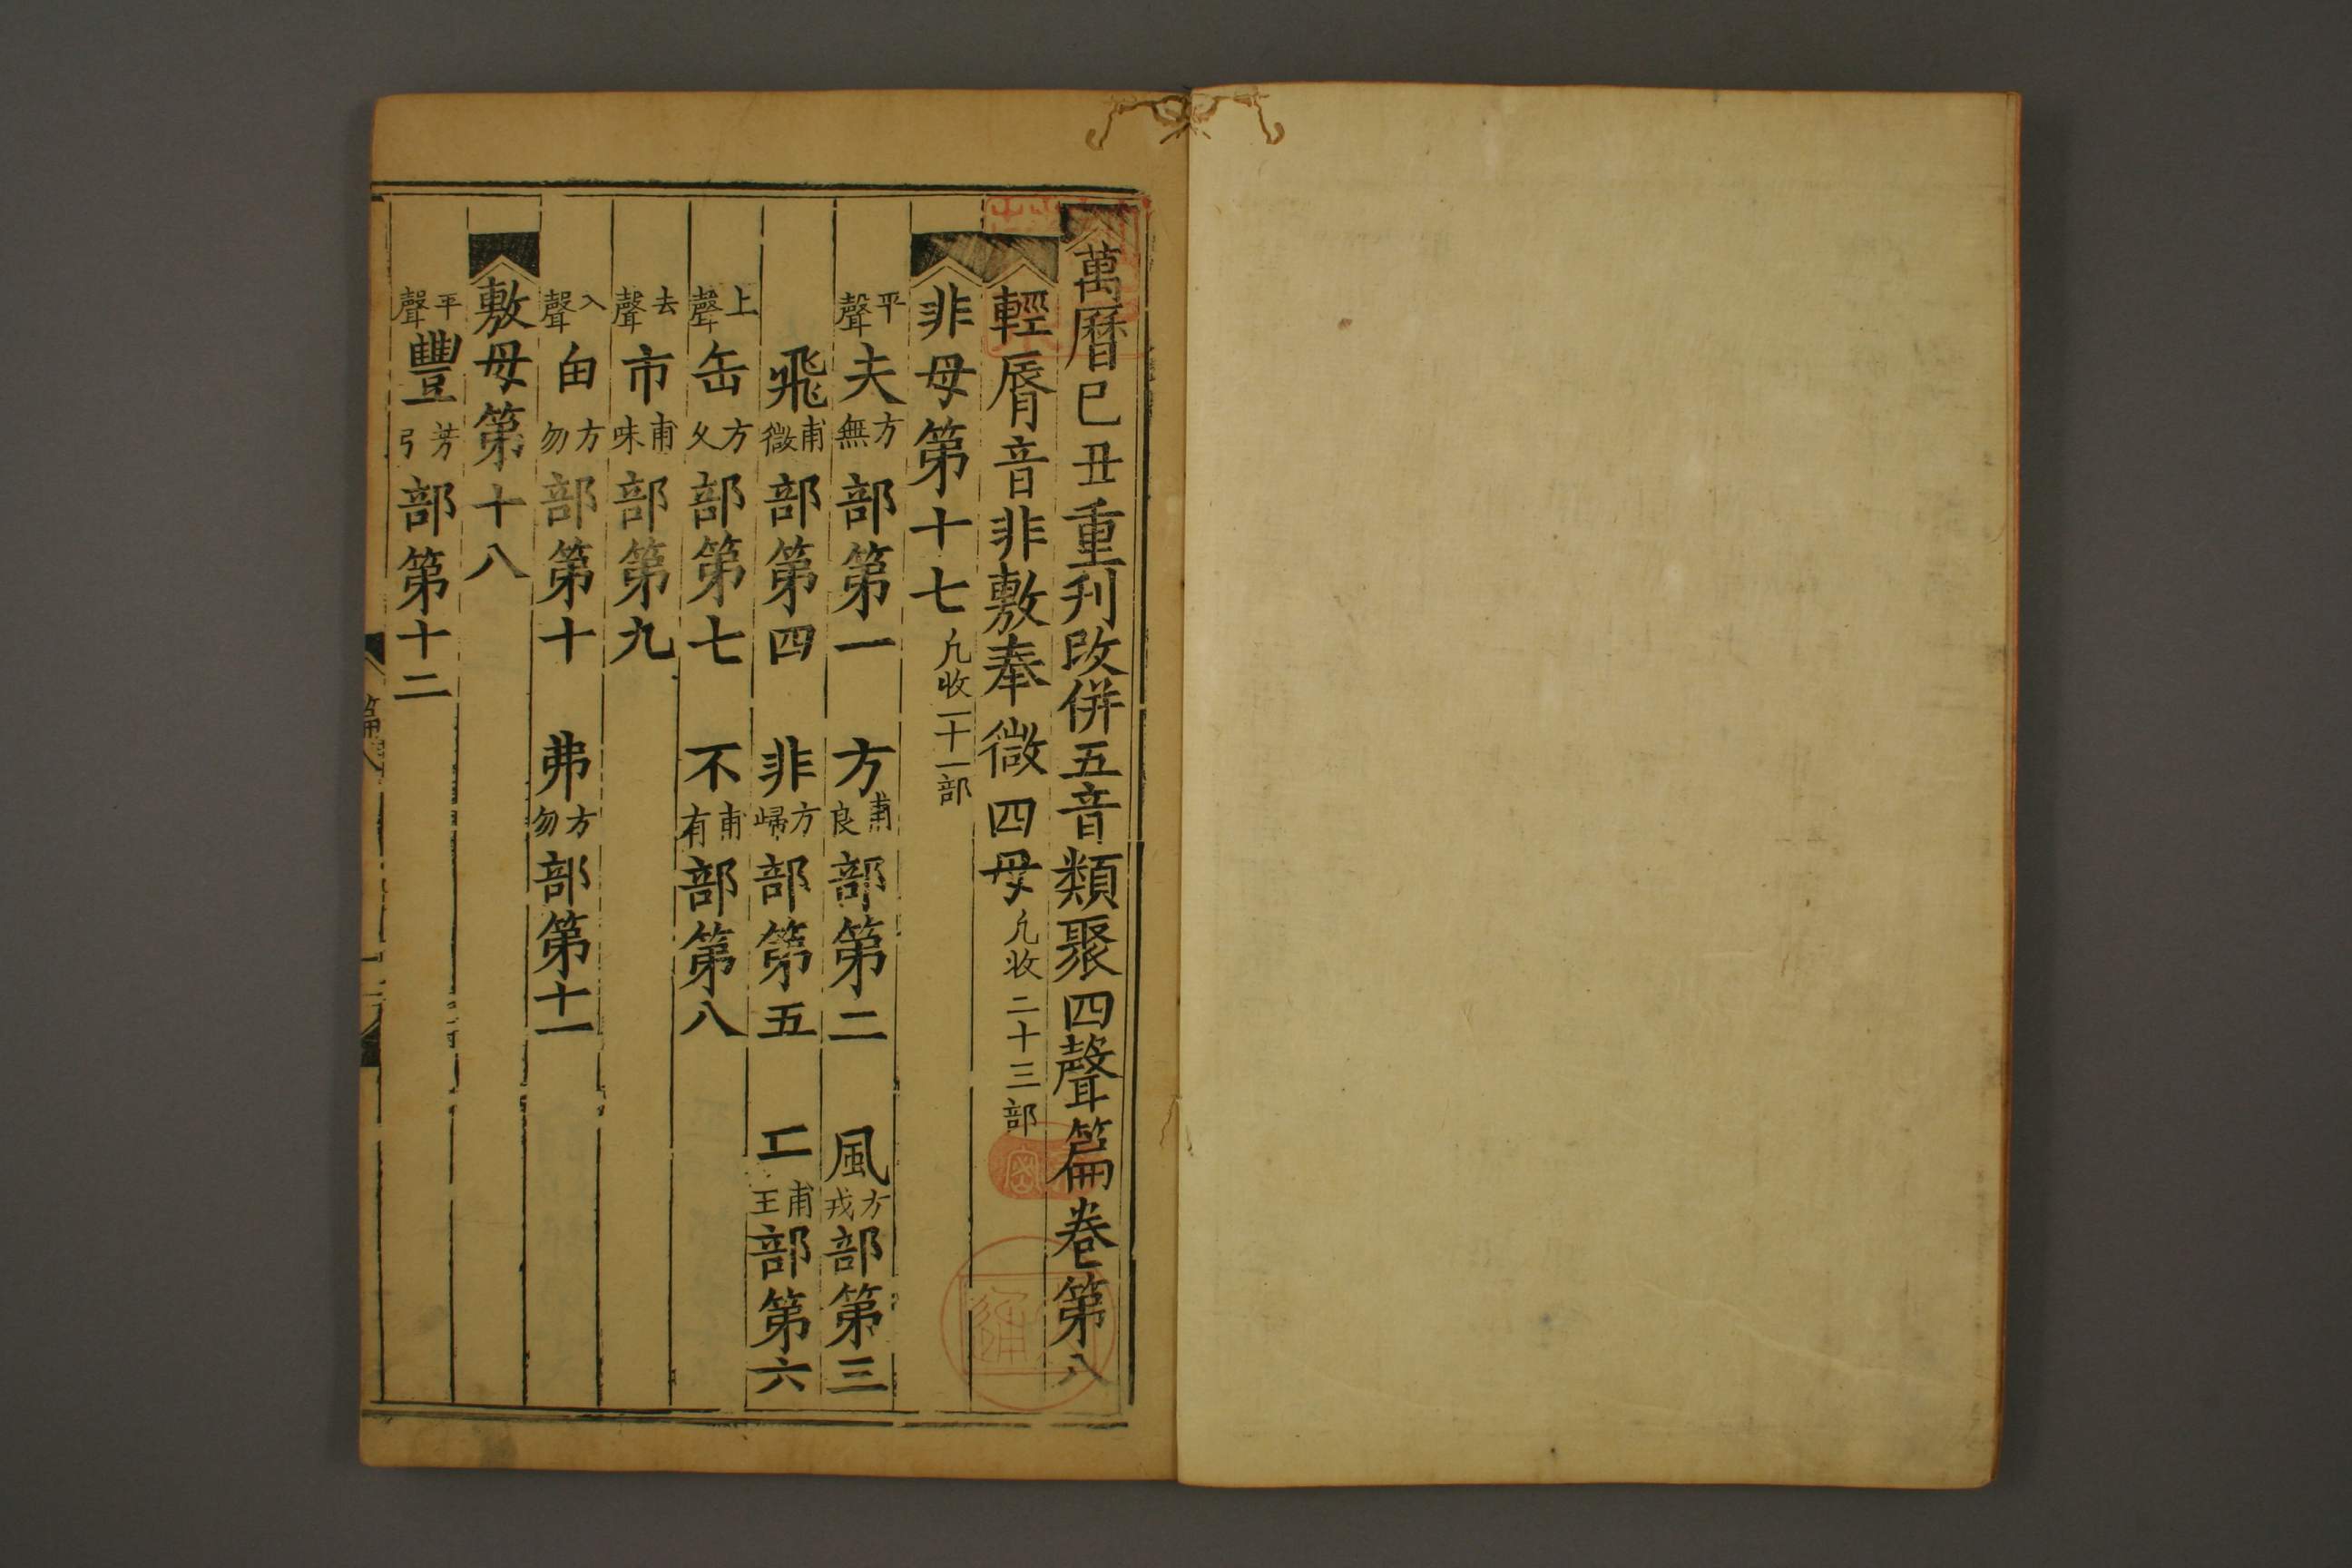 萬曆己丑重刊改併五音類聚四聲篇卷第八
輕脣音非敷奉微四母凡收二十三部
非母第十七凡收一十一部
平聲夫方無部第一 方甫良部第二 風方戎部第三
飛甫微部第四 非方歸部第五 匚甫王部第六
上聲缶方久部第七 不甫有部第八
去聲巿甫味部第九
入聲甶方勿部第十 弗方勿部第十一
敷母第十八
平聲豐芳弓部第十二
篇八